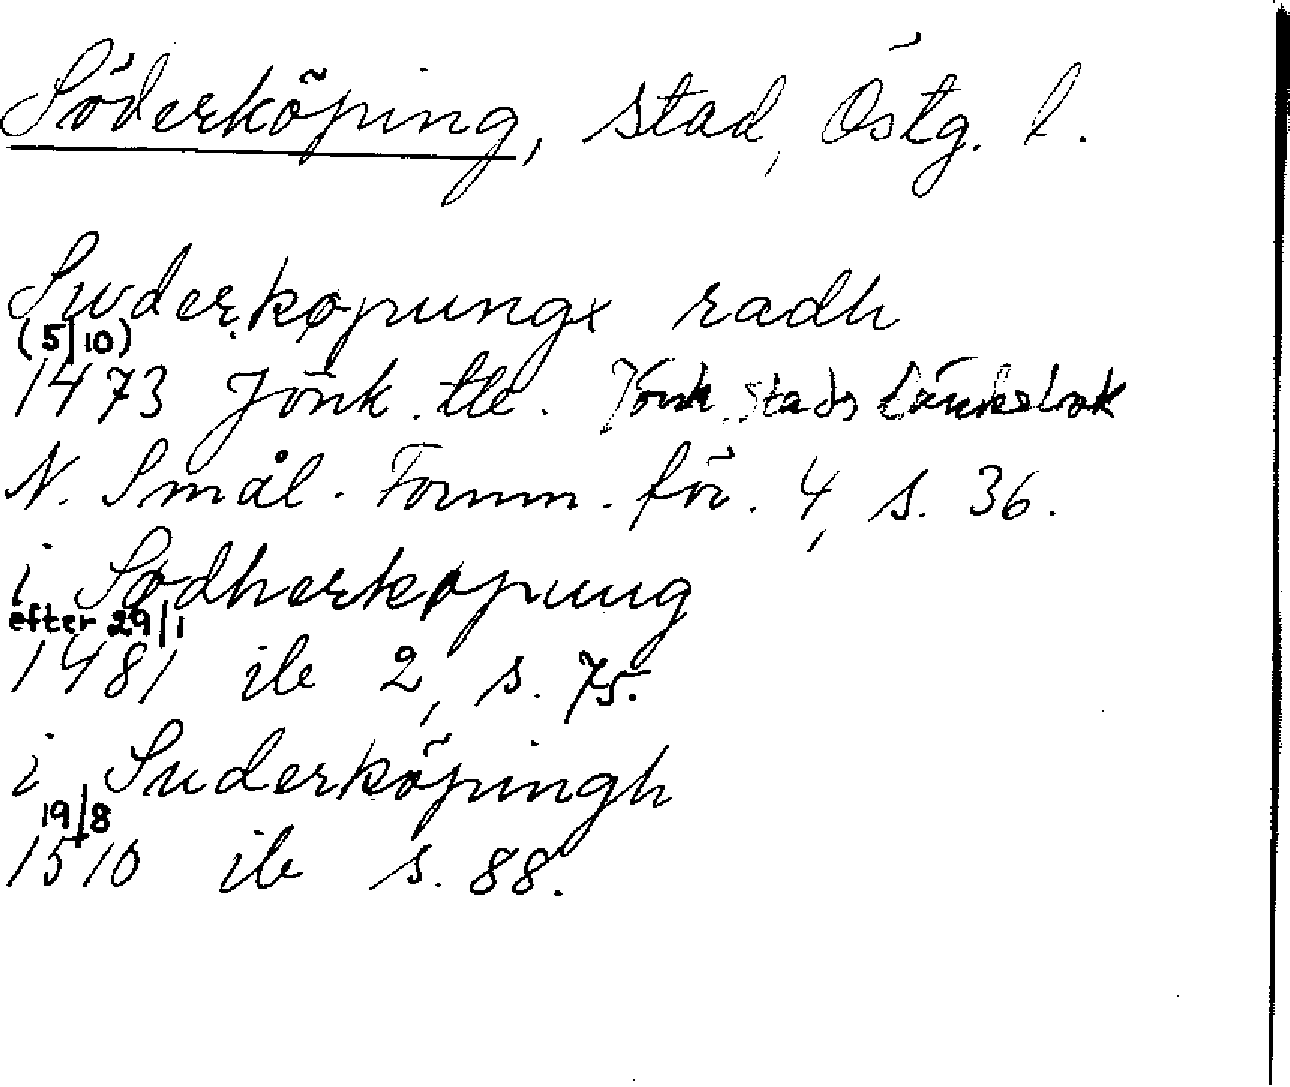 Söderköping, stad, Östg. l.
Swderkøpungx radh
(5/10)
1473 Jönk. tle. Jönk. stads tänkebok
N. Smål. Fornm. för. 4, s. 36.
i Sødherkøpung
efter 29/1
1481 ib 2, s. 75.
i Suderköpingh
19/8
1510 ib s. 88.